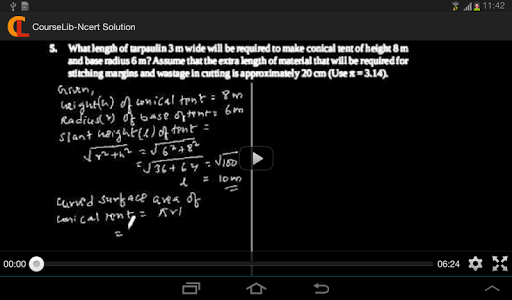 11:42
CL CourseLib-Ncert Solution
5. What length of tarpaulin 3 m wide will be required to make conical tent of height 8 m
and base radius 6 m? Assume that the extra length of material that will be required for
stitching margins and wastage in cutting is approximately 20 cm (Use π = 3.14).
Given,
height(h) of conical tent = 8m
Radius(r) of base of tent = 6m
Slant height (l) of tent =
√r²+h² = √6²+8²
= √36+64 = √100
l = 10m
Curved surface area of
conical tent = πrl
=
00:00 06:24